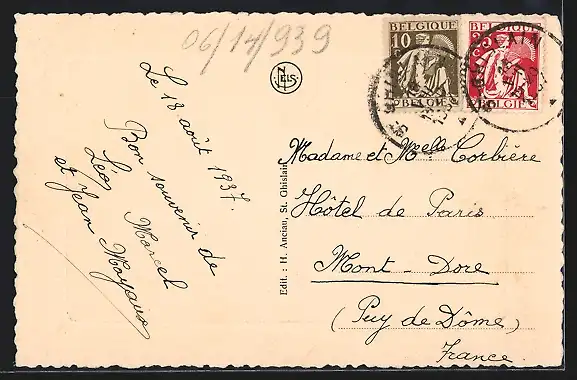 06/14/939
Le 18 août 1937.
Bon souvenir de
Marcel
Léa
et Jean
NELS
Edit. : H. Anciau, St. Ghislain
BELGIQUE BELGIQUE
10
BELGIË BELGIË
Madame et Melle Corbière
Hôtel de Paris
Mont-Dore
(Puy de Dôme)
France.